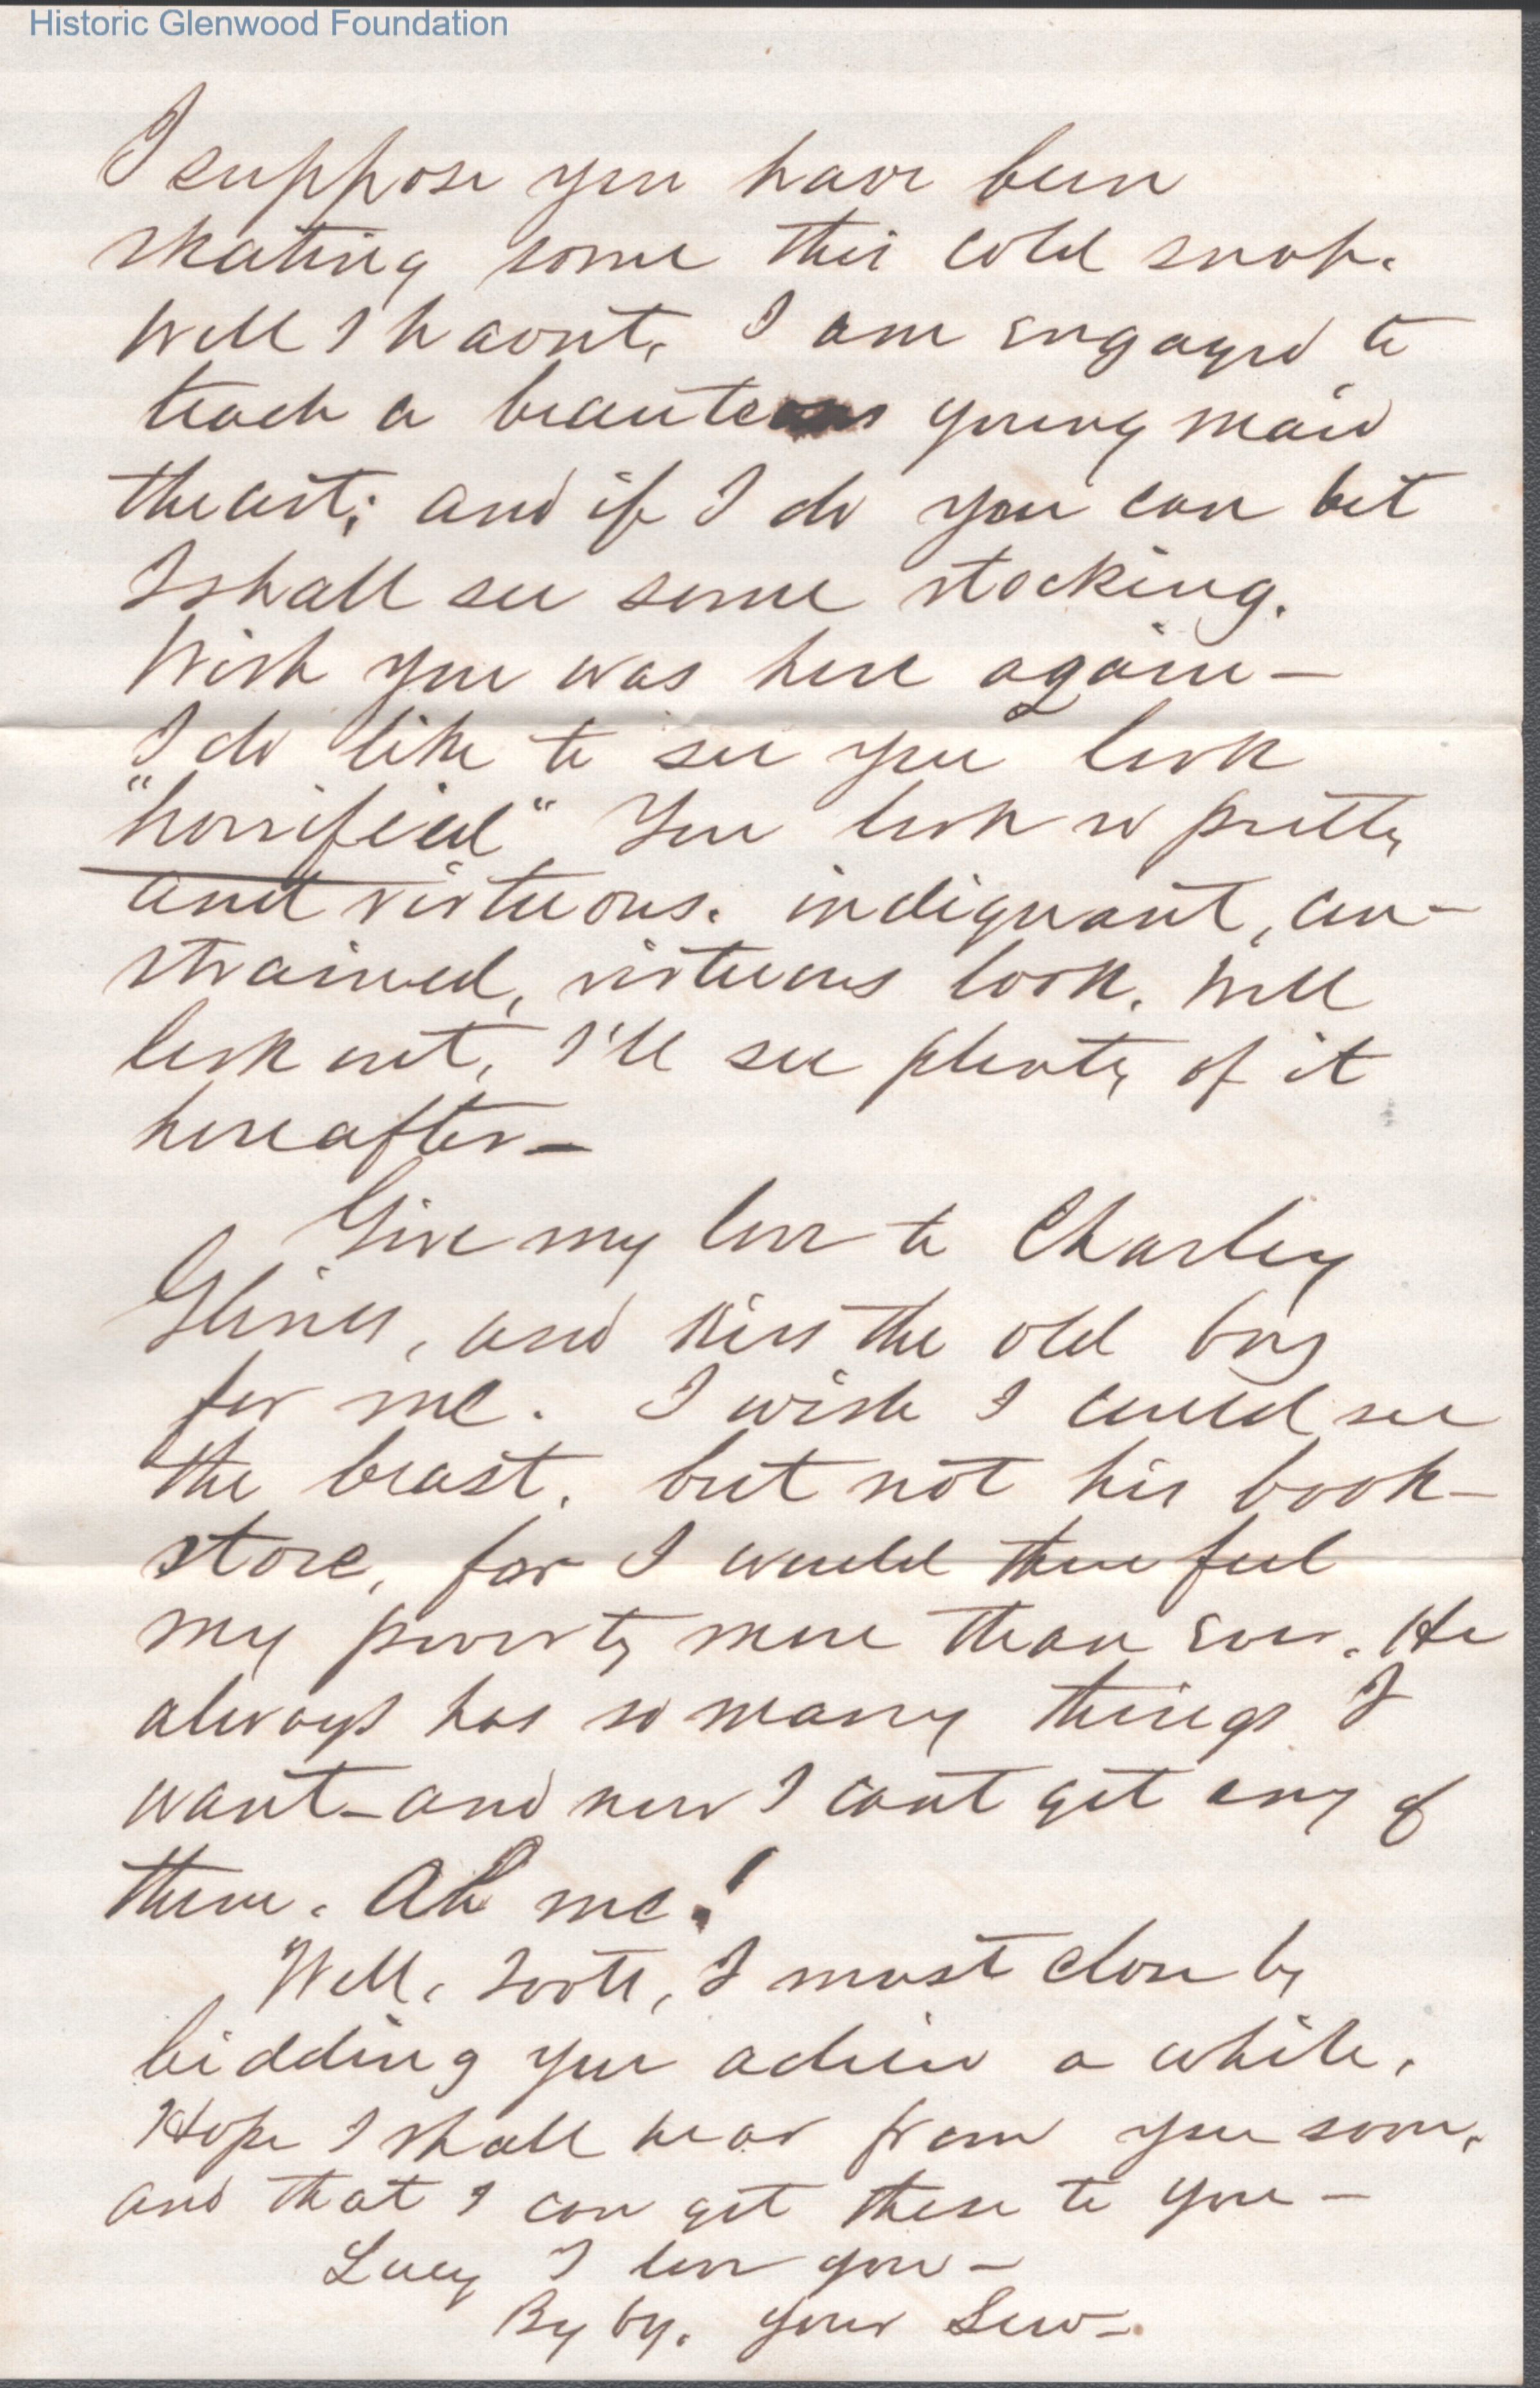 Historic Glenwood Foundation
I suppose you have been
skating some this cold snap.
Well I havn't. I am engaged to
teach a beauteous young maid
the art; and if I do you can bet
I shall see some stocking.
Wish you was here again—
I do like to see you look
"horrified" You look so pretty
and virtuous. indignant, con-
strained, virtuous look. Well
look out, I'll see plenty of it
hereafter—
Give my love to Charley
Glines, and kiss the old boy
for me. I wish I could see
the beast, but not his book-
store, for I would then feel
my poverty more than ever. He
always has so many things I
want—and now I cant get any of
them. Ah me!
Well, I must close by
bidding you adieu a while.
Hope I shall hear from you soon,
and that I can get these to you—
Lucy I love you—
By by. your Lew—